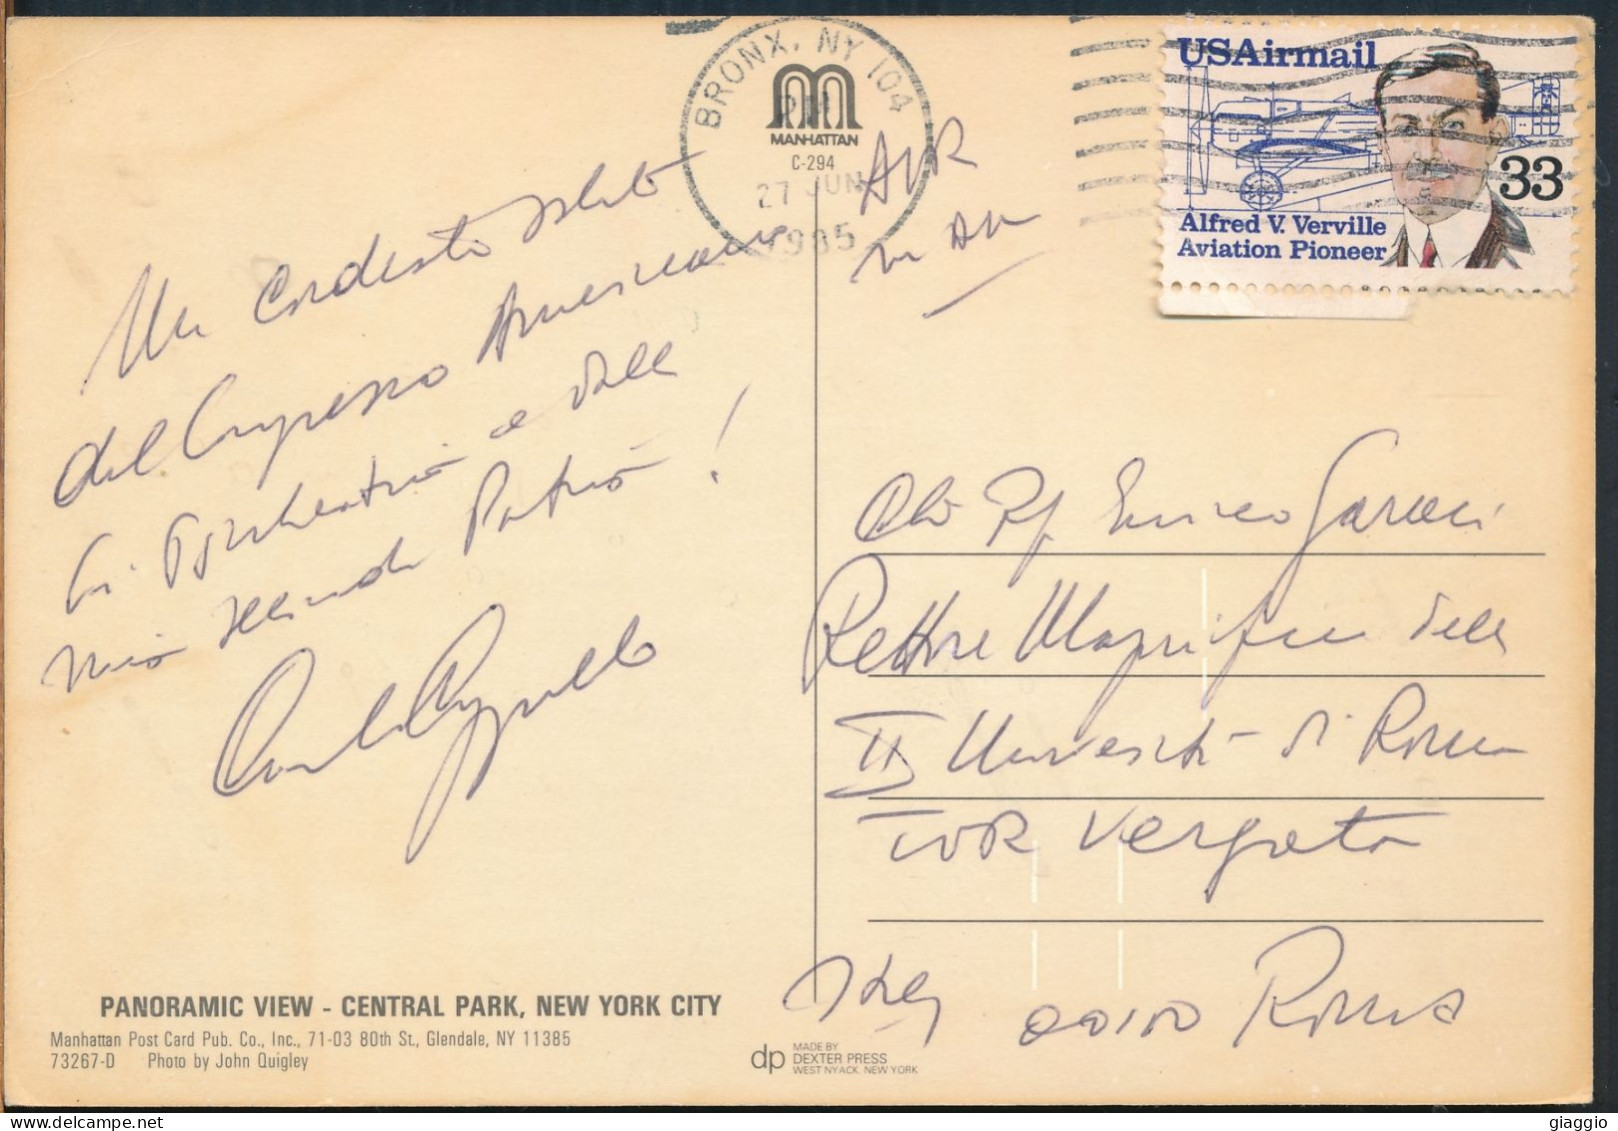 BRONX, NY 104
PM
27 JUN
1985
MANHATTAN
C-294
USAirmail
33
Alfred V. Verville
Aviation Pioneer
AIR
Un cordiale saluto
del Congresso Americano
di e dalla
mia seconda Patria!
Carlo
Prof Enrico Garaci
Rettore Magnifico della
II Università di Roma
TOR Vergata
Italy 00100 Roma
PANORAMIC VIEW - CENTRAL PARK, NEW YORK CITY
Manhattan Post Card Pub. Co., Inc., 71-03 80th St., Glendale, NY 11385
73267-D Photo by John Quigley
dp MADE BY
DEXTER PRESS
WEST NYACK, NEW YORK
giaggio